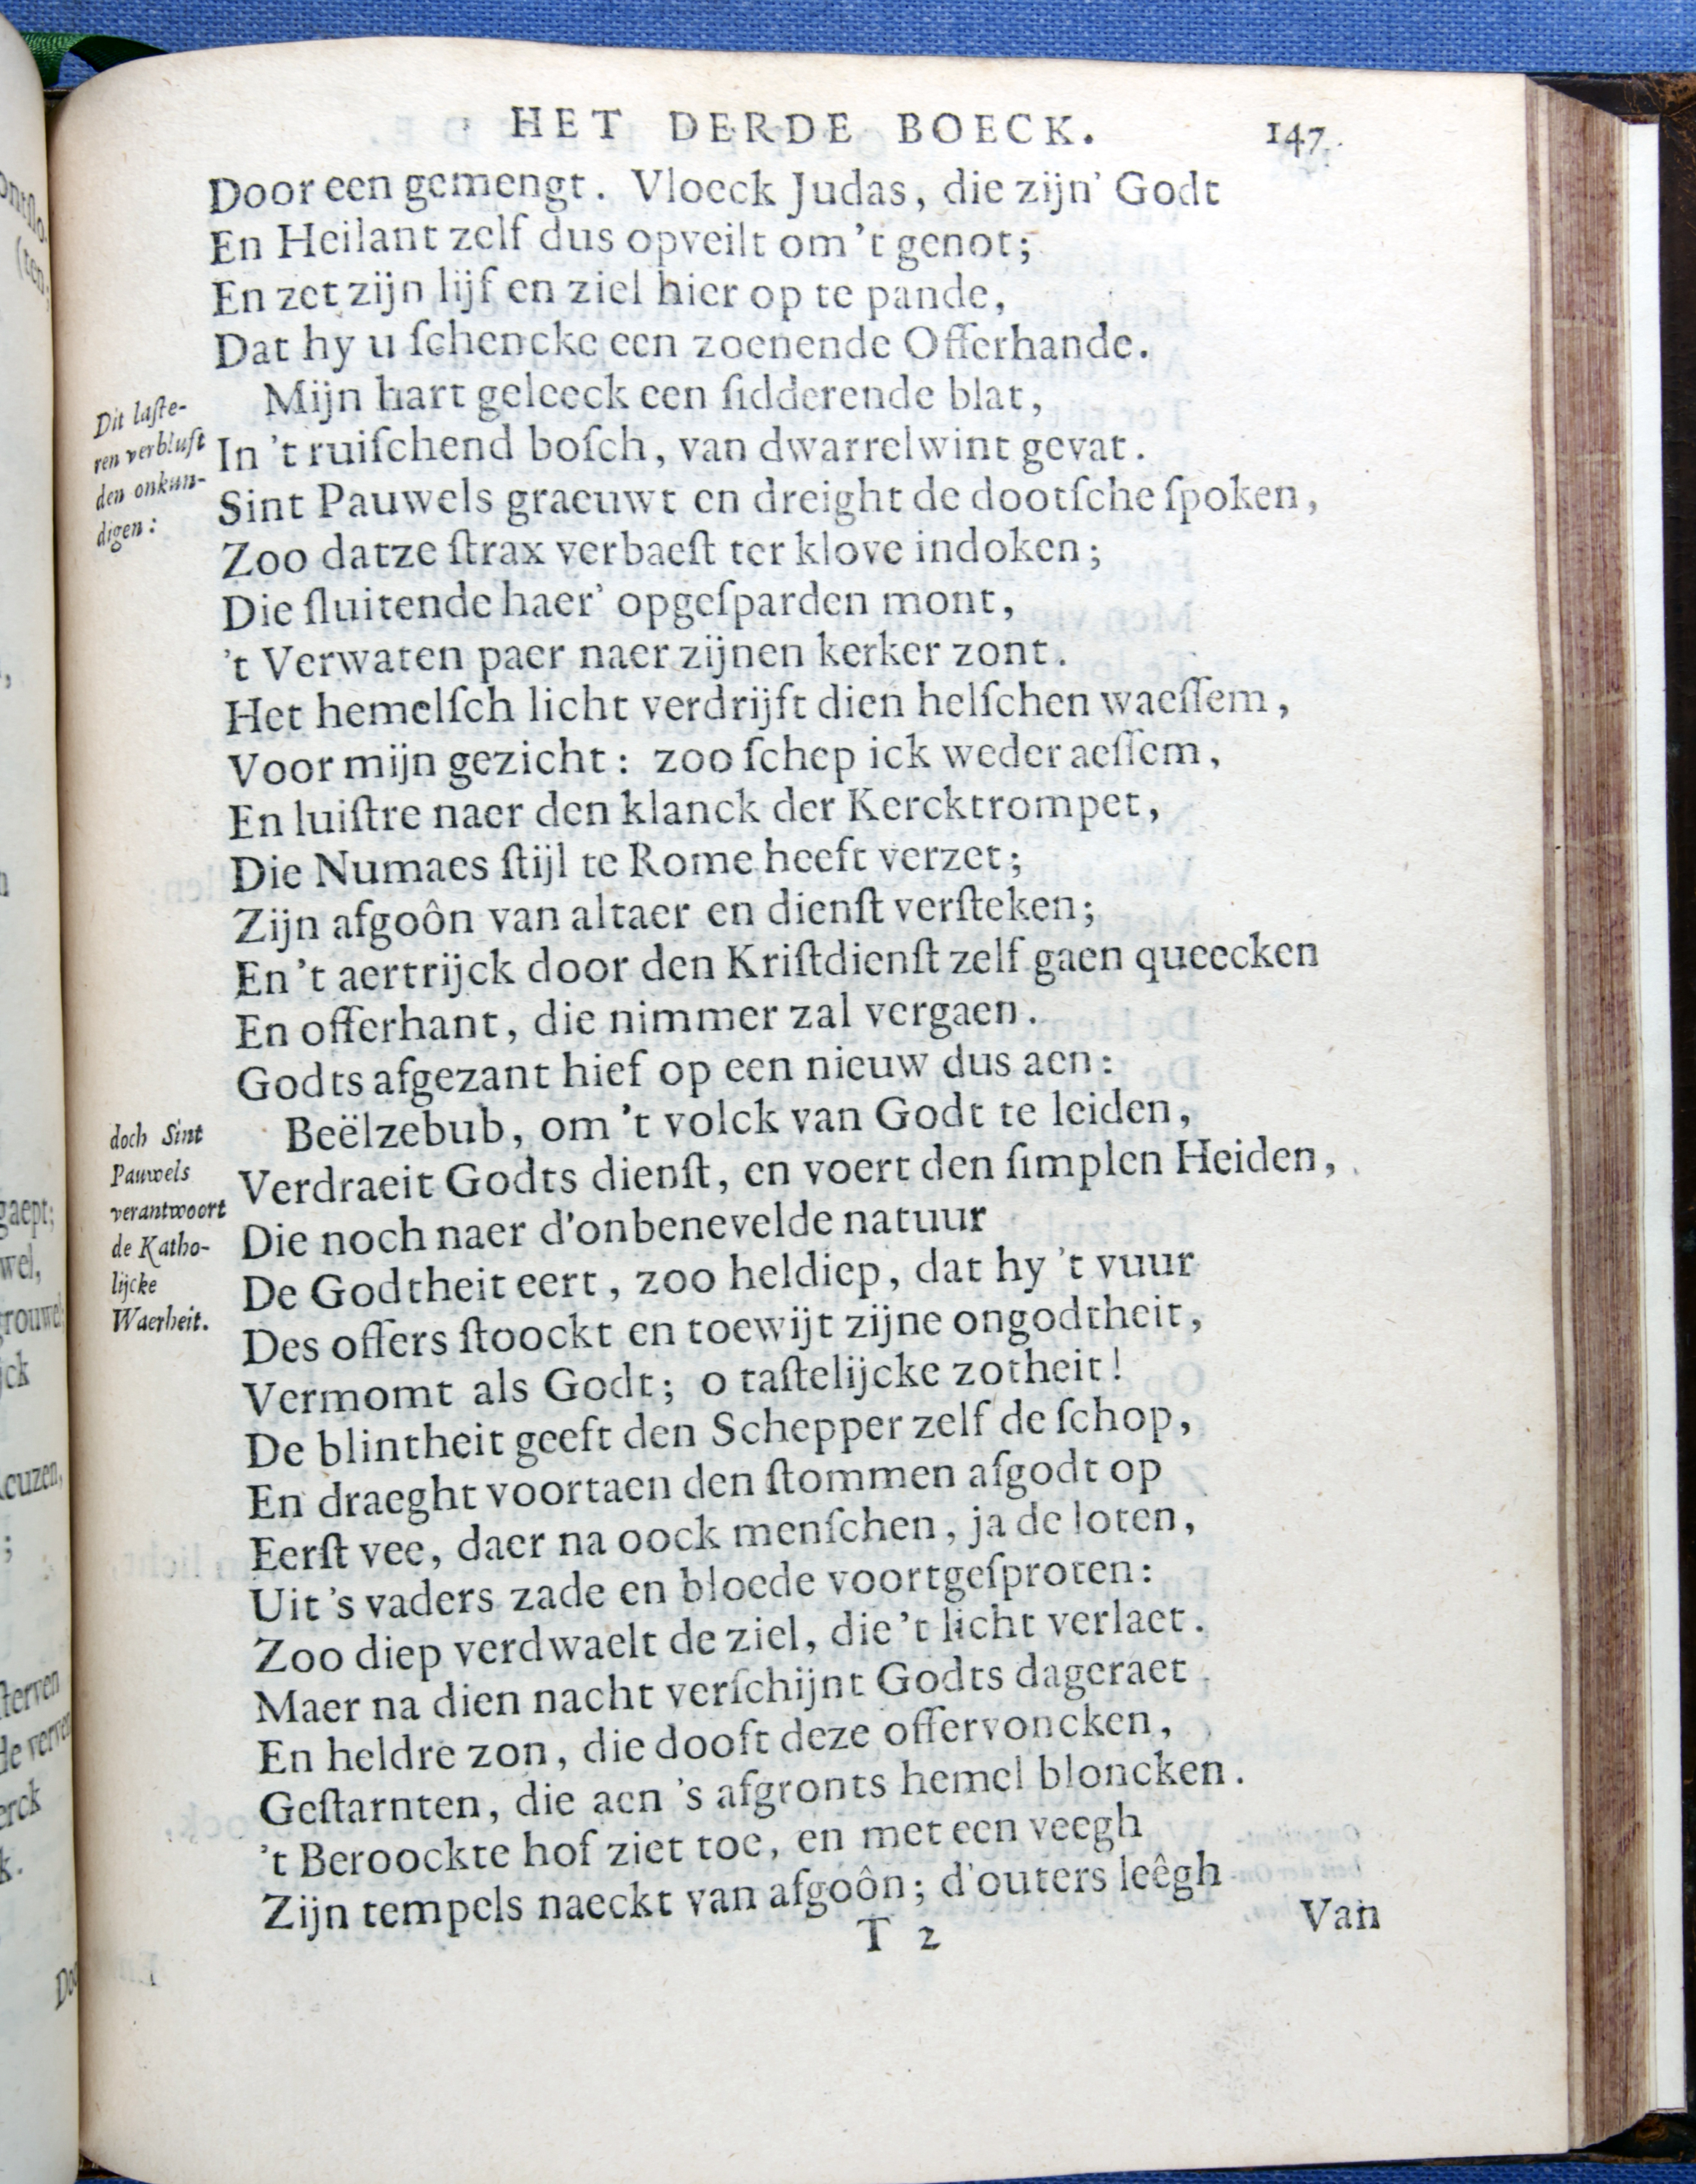 HET DERDE BOECK. 147.
Door een gemengt. Vloeck Judas, die zijn' Godt
En Heilant zelf dus opveilt om 't genot;
En zet zijn lijf en ziel hier op te pande,
Dat hy u ſchencke een zoenende Offerhande.
Dit laſte-
ren verbluſt
den onkun-
digen:
Mijn hart geleeck een ſidderende blat,
In 't ruiſchend boſch, van dwarrelwint gevat.
Sint Pauwels graeuwt en dreight de dootſche ſpoken,
Zoo datze ſtrax verbaeſt ter klove indoken;
Die ſluitende haer' opgeſparden mont,
't Verwaten paer naer zijnen kerker zont.
Het hemelſch licht verdrijft dien helſchen waeſſem,
Voor mijn gezicht: zoo ſchep ick weder aeſſem,
En luiſtre naer den klanck der Kercktrompet,
Die Numaes ſtijl te Rome heeft verzet;
Zijn afgoôn van altaer en dienſt verſteken;
En 't aertrijck door den Kriſtdienſt zelf gaen queecken
En offerhant, die nimmer zal vergaen.
Godts afgezant hief op een nieuw dus aen:
doch Sint
Pauwels
verantwoort
de Katho-
lijcke
Waerheit.
Beëlzebub, om 't volck van Godt te leiden,
Verdraeit Godts dienſt, en voert den ſimplen Heiden,
Die noch naer d'onbenevelde natuur
De Godtheit eert, zoo heldiep, dat hy 't vuur
Des offers ſtoockt en toewijt zijne ongodtheit,
Vermomt als Godt; o taſtelijcke zotheit!
De blintheit geeft den Schepper zelf de ſchop,
En draeght voortaen den ſtommen afgodt op
Eerſt vee, daer na oock menſchen, ja de loten,
Uit 's vaders zade en bloede voortgeſproten:
Zoo diep verdwaelt de ziel, die 't licht verlaet.
Maer na dien nacht verſchijnt Godts dageraet
En heldre zon, die dooft deze offervoncken,
Geſtarnten, die aen 's afgronts hemel bloncken.
't Beroockte hof ziet toe, en met een veegh
Zijn tempels naeckt van afgoôn; d'outers leêgh
T 2 Van